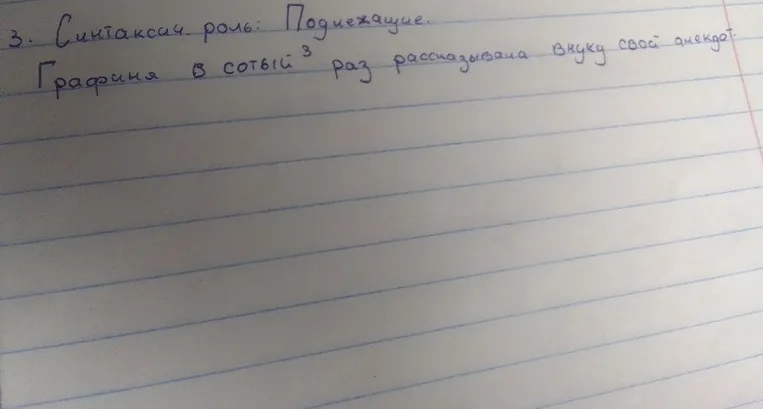 3. Синтаксич. роль: Подлежащие.
Графиня в сотый³ раз рассказывала внуку свой анекдот.